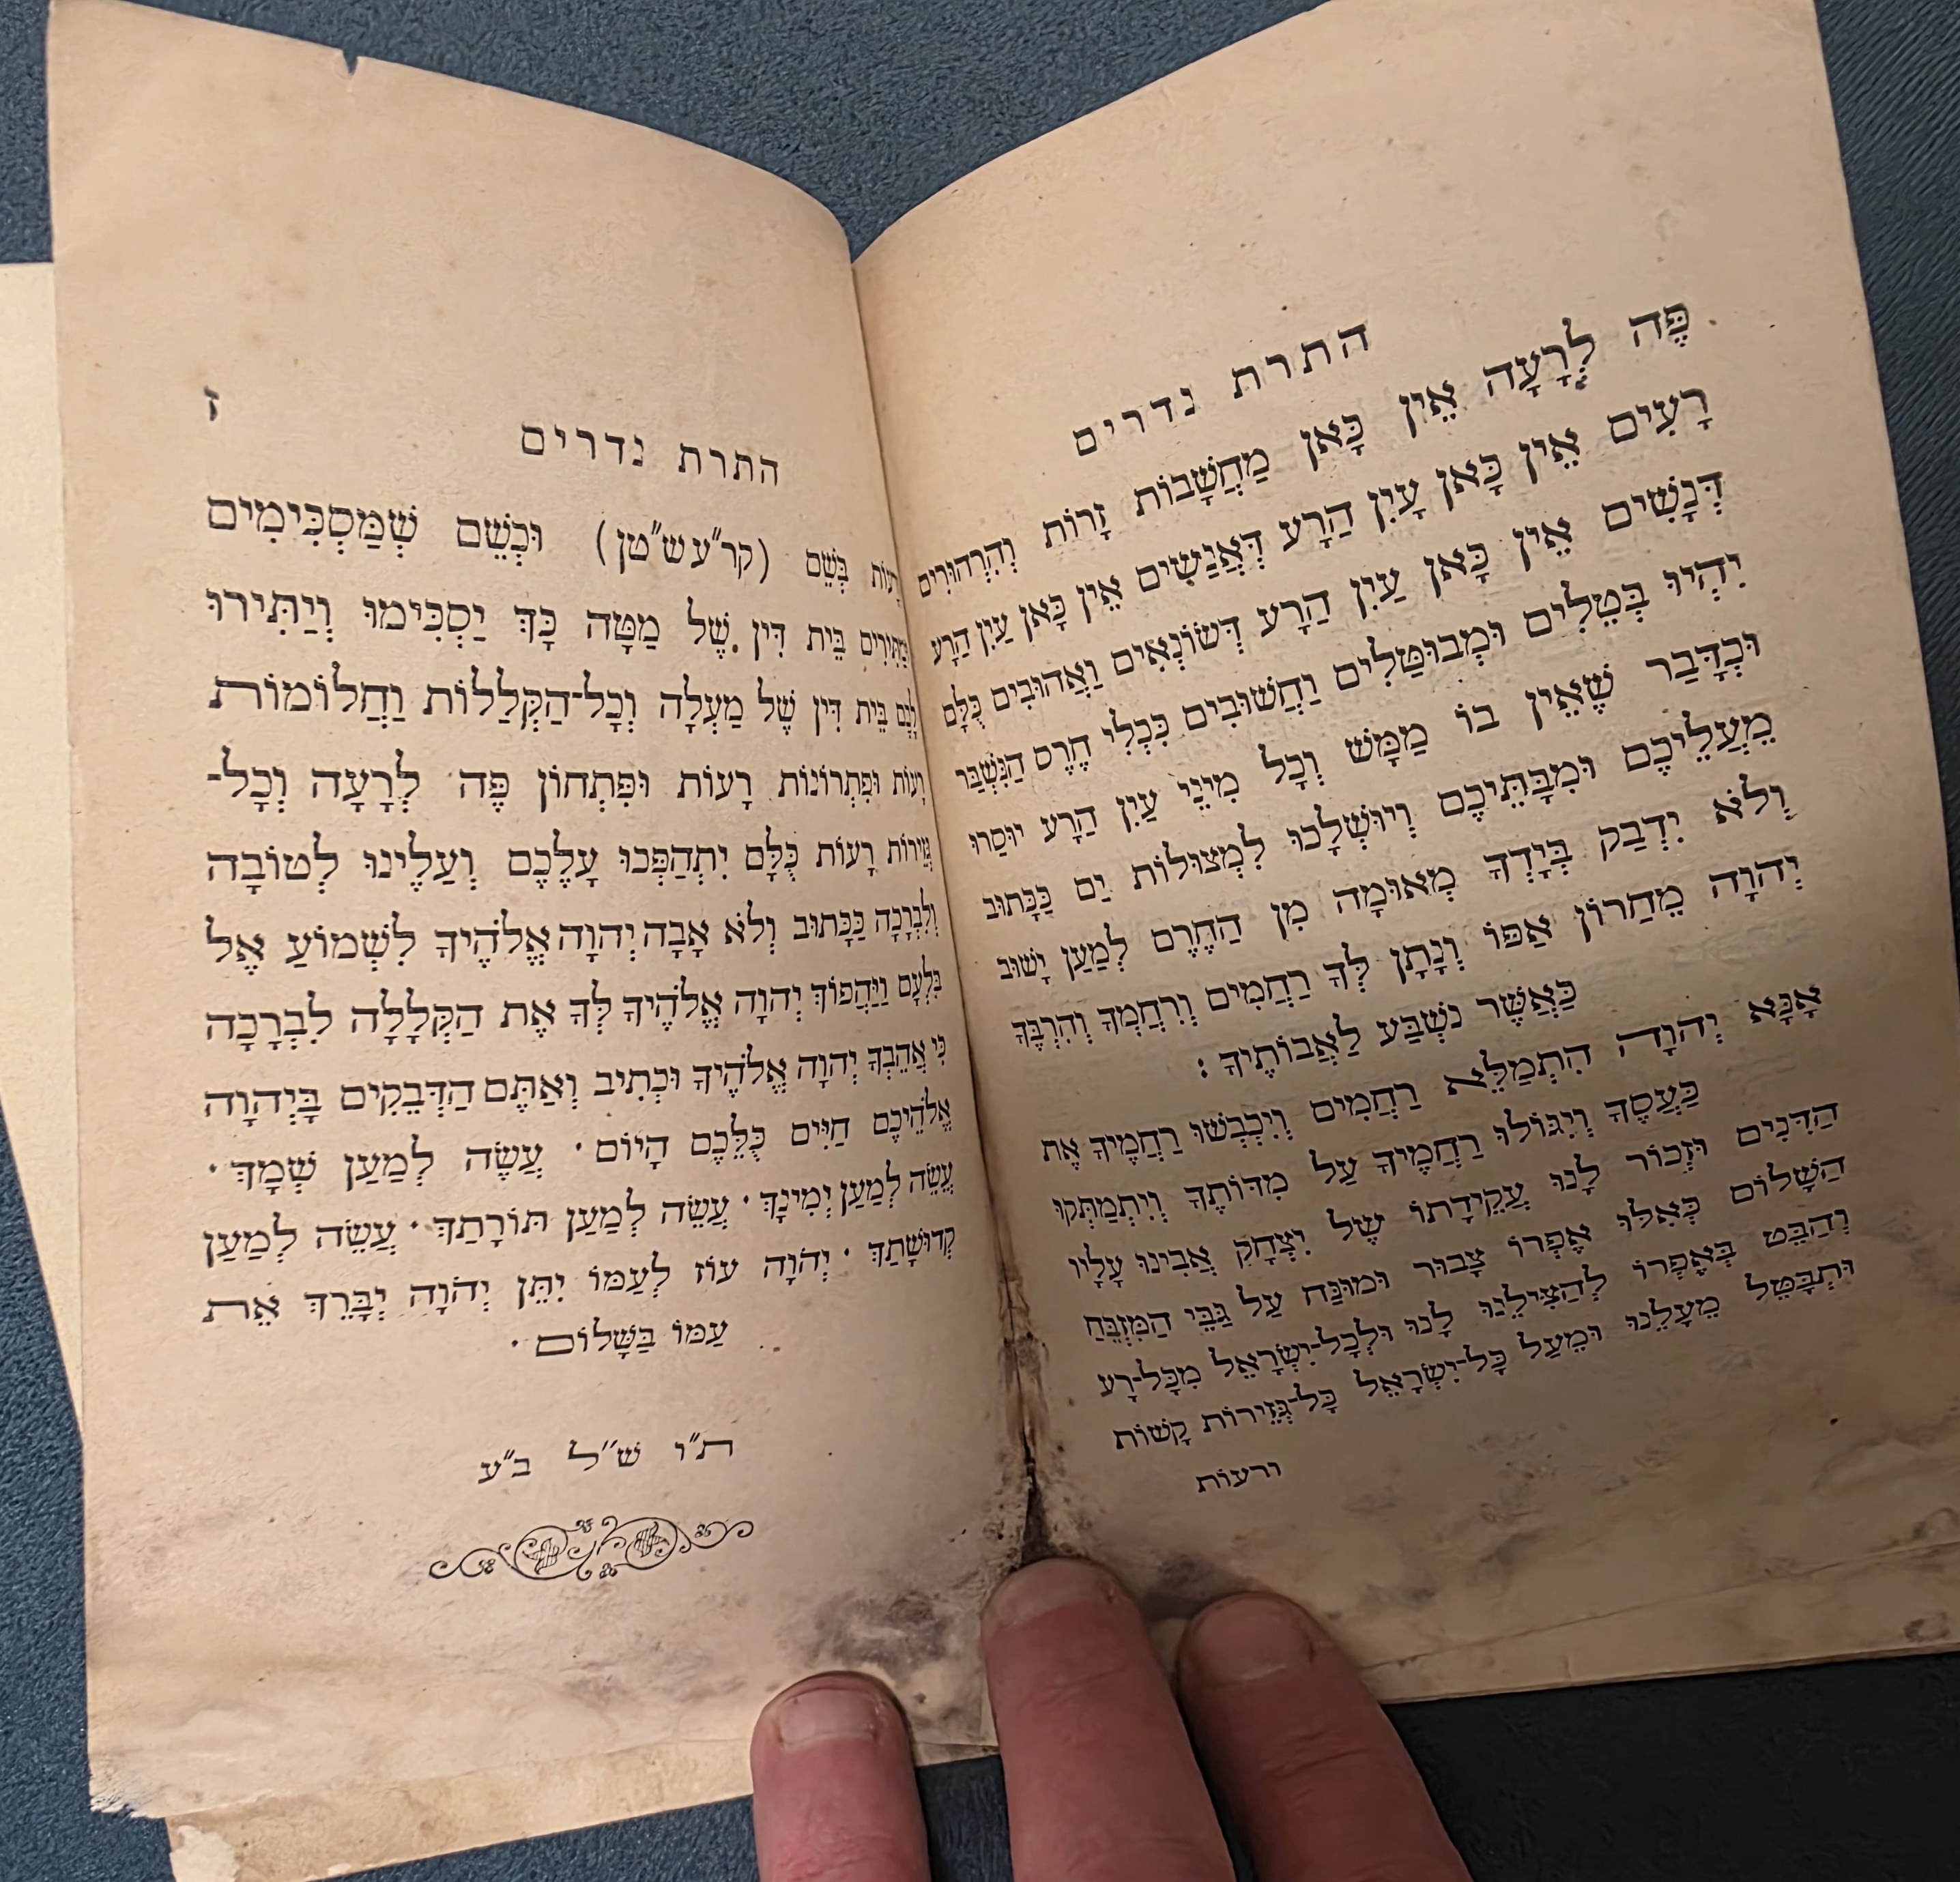 התרת נדרים
פֶּה לְרָעָה אֵין כָּאן מַחֲשָׁבוֹת זָרוֹת וְהִרְהוּרִים
רָעִים אֵין כָּאן עַיִן הַרָע דְּאֲנָשִׁים אֵין כָּאן עַיִן הַרָע
דְּנָשִׁים אֵין כָּאן עַיִן הַרָע דְּשׂוֹנְאִים וַאֲהוּבִים כֻּלָּם
יִהְיוּ בְּטֵלִים וּמְבוּטָּלִים וַחֲשׁוּבִים כִּכְלִי חֶרֶס הַנִּשְׁבָּר
וּכְדָּבַר שֶׁאֵין בּוֹ מַמָּשׁ וְכָל מִינֵי עַיִן הַרָע יוּסַרוּ
מֵעֲלֵיכֶם וּמִבָּתֵּיכֶם וְיוּשְׁלָכוּ לִמְצוּלוֹת יַם כַּכָּתוּב
וְלֹא יִדְבַּק בְּיָדְךָ מְאוּמָה מִן הַחֶרֶם לְמַעַן יָשׁוּב
יְהוָה מֵחֲרוֹן אַפּוֹ וְנָתַן לְךָ רַחֲמִים וְרִחַמְךָ וְהִרְבֶּךָ
כַּאֲשֶׁר נִשְׁבַּע לַאֲבוֹתֶיךָ :
אָנָּא יְהוָה הִתְמַלֵּא רַחֲמִים וְיִכְבְּשׁוּ רַחֲמֶיךָ אֶת
כַּעֲסֶךָ וְיִגּוֹלוּ רַחֲמֶיךָ עַל מִדּוֹתֶךָ וְיִתְמַתְּקוּ
הַדִּנִים וּזְכוֹר לָנוּ עֲקֵידָתוֹ שֶׁל יִצְחָק אֲבִינוּ עָלָיו
הַשָּׁלוֹם כְּאִלּוּ אֶפְרוֹ צָבוּר וּמוּנַּח עַל גַּבֵּי הַמִּזְבֵּחַ
וְהַבֵּט בְּאֶפְרוֹ לְהַצִּילֵנוּ לָנוּ וּלְכָל־יִשְׂרָאֵל מִכָּל־רָע
וּתְבַּטֵּל מֵעָלֵנוּ וּמֵעַל כָּל־יִשְׂרָאֵל כָּל־גְּזֵירוֹת קָשׁוֹת
ורעות
התרת נדרים ז
בְּשֵׁם (קר״ע ש״טן) וּכְשֵׁם שְׁמַּסְכִּימִים
בֵּית דִּין שֶׁל מַטָּה כָּךְ יַסְכִּימוּ וְיַתִּירוּ
בֵּית דִּין שֶׁל מַעְלָה וְכָל־הַקְּלָלוֹת וַחֲלוֹמוֹת
רָעוֹת וּפִתְרוֹנוֹת רָעוֹת וּפִּתְחוֹן פֶּה לְרָעָה וְכָל־
גְּזֵירוֹת רָעוֹת כֻּלָּם יִתְהַפְּכוּ עָלֶכֶם וְעַלֶינוּ לְטוֹבָה
וְלִבְרָכָה כַּכָּתוּב וְלֹא אָבָה יְהוָה אֱלֹהֶיךָ לִשְׁמוֹעַ אֶל
בִּלְעָם וַיַּהֲפוֹךְ יְהוָה אֱלֹהֶיךָ לְּךָ אֶת הַקְּלָלָה לִבְרָכָה
כִּי אֲהֵבְךָ יְהוָה אֱלֹהֶיךָ וּכְתִיב וְאַתֶּם הַדְּבֵקִים בַּיְהוָה
אֱלֹהֵיכֶם חַיִּים כֻּלֵּכֶם הָיוֹם · עֲשֵׂה לְמַעַן שְׁמָךְ ·
עֲשֵׂה לְמַעַן יְמִינָךְ · עֲשֵׂה לְמַעַן תּוֹרָתַךְ · עֲשֵׂה לְמַעַן
קְדוּשָׁתַךְ · יְהֹוָה עוֹז לְעַמּוֹ יִתֵּן יְהֹוָה יְבָּרֵךְ אֵת
עַמּוֹ בַשָּׁלוֹם ·
ת״ו ש״ל ב״ע